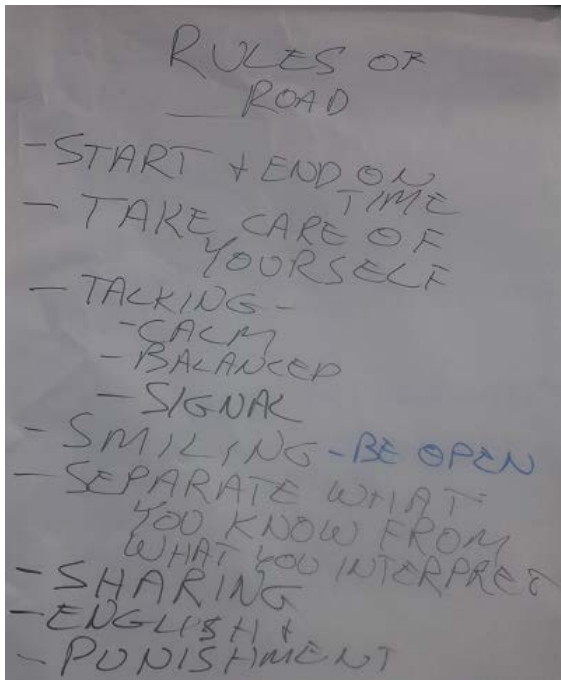 RULES OF
ROAD
- START + END ON
TIME
- TAKE CARE OF
YOURSELF
- TALKING -
- CALM
- BALANCED
- SIGNAL
- SMILING - BE OPEN
- SEPARATE WHAT
YOU KNOW FROM
WHAT YOU INTERPRET
- SHARING
- ENGLISH +
- PUNISHMENT